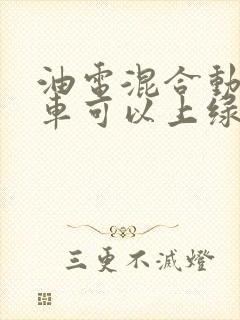 油電混合動
車可以上綠
三更不滅燈